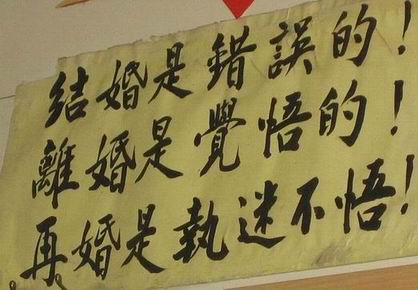 结婚是錯誤的！
離婚是覺悟的！
再婚是執迷不悟！